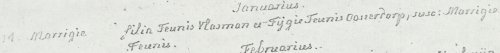 Januarius.
14. Marrigie filia Teunis Vlasman u Fijgie Teunis Oanerdorp, susc: Marrigie
Teunis.
Februarius.